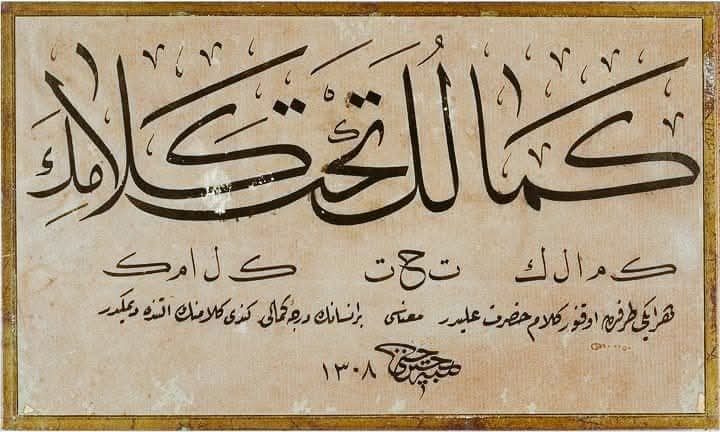 كمالُك تَحتَ كلامِكَ
ك م ا ل ك ت ح ت ك ل ا م ك
هر ایكی طرفدن اوقنور كلام حضرت علیدر معناسی بر انسانك درجۀ كمالی كندی كلامنك التنده دیمكدر
١٣٠٨